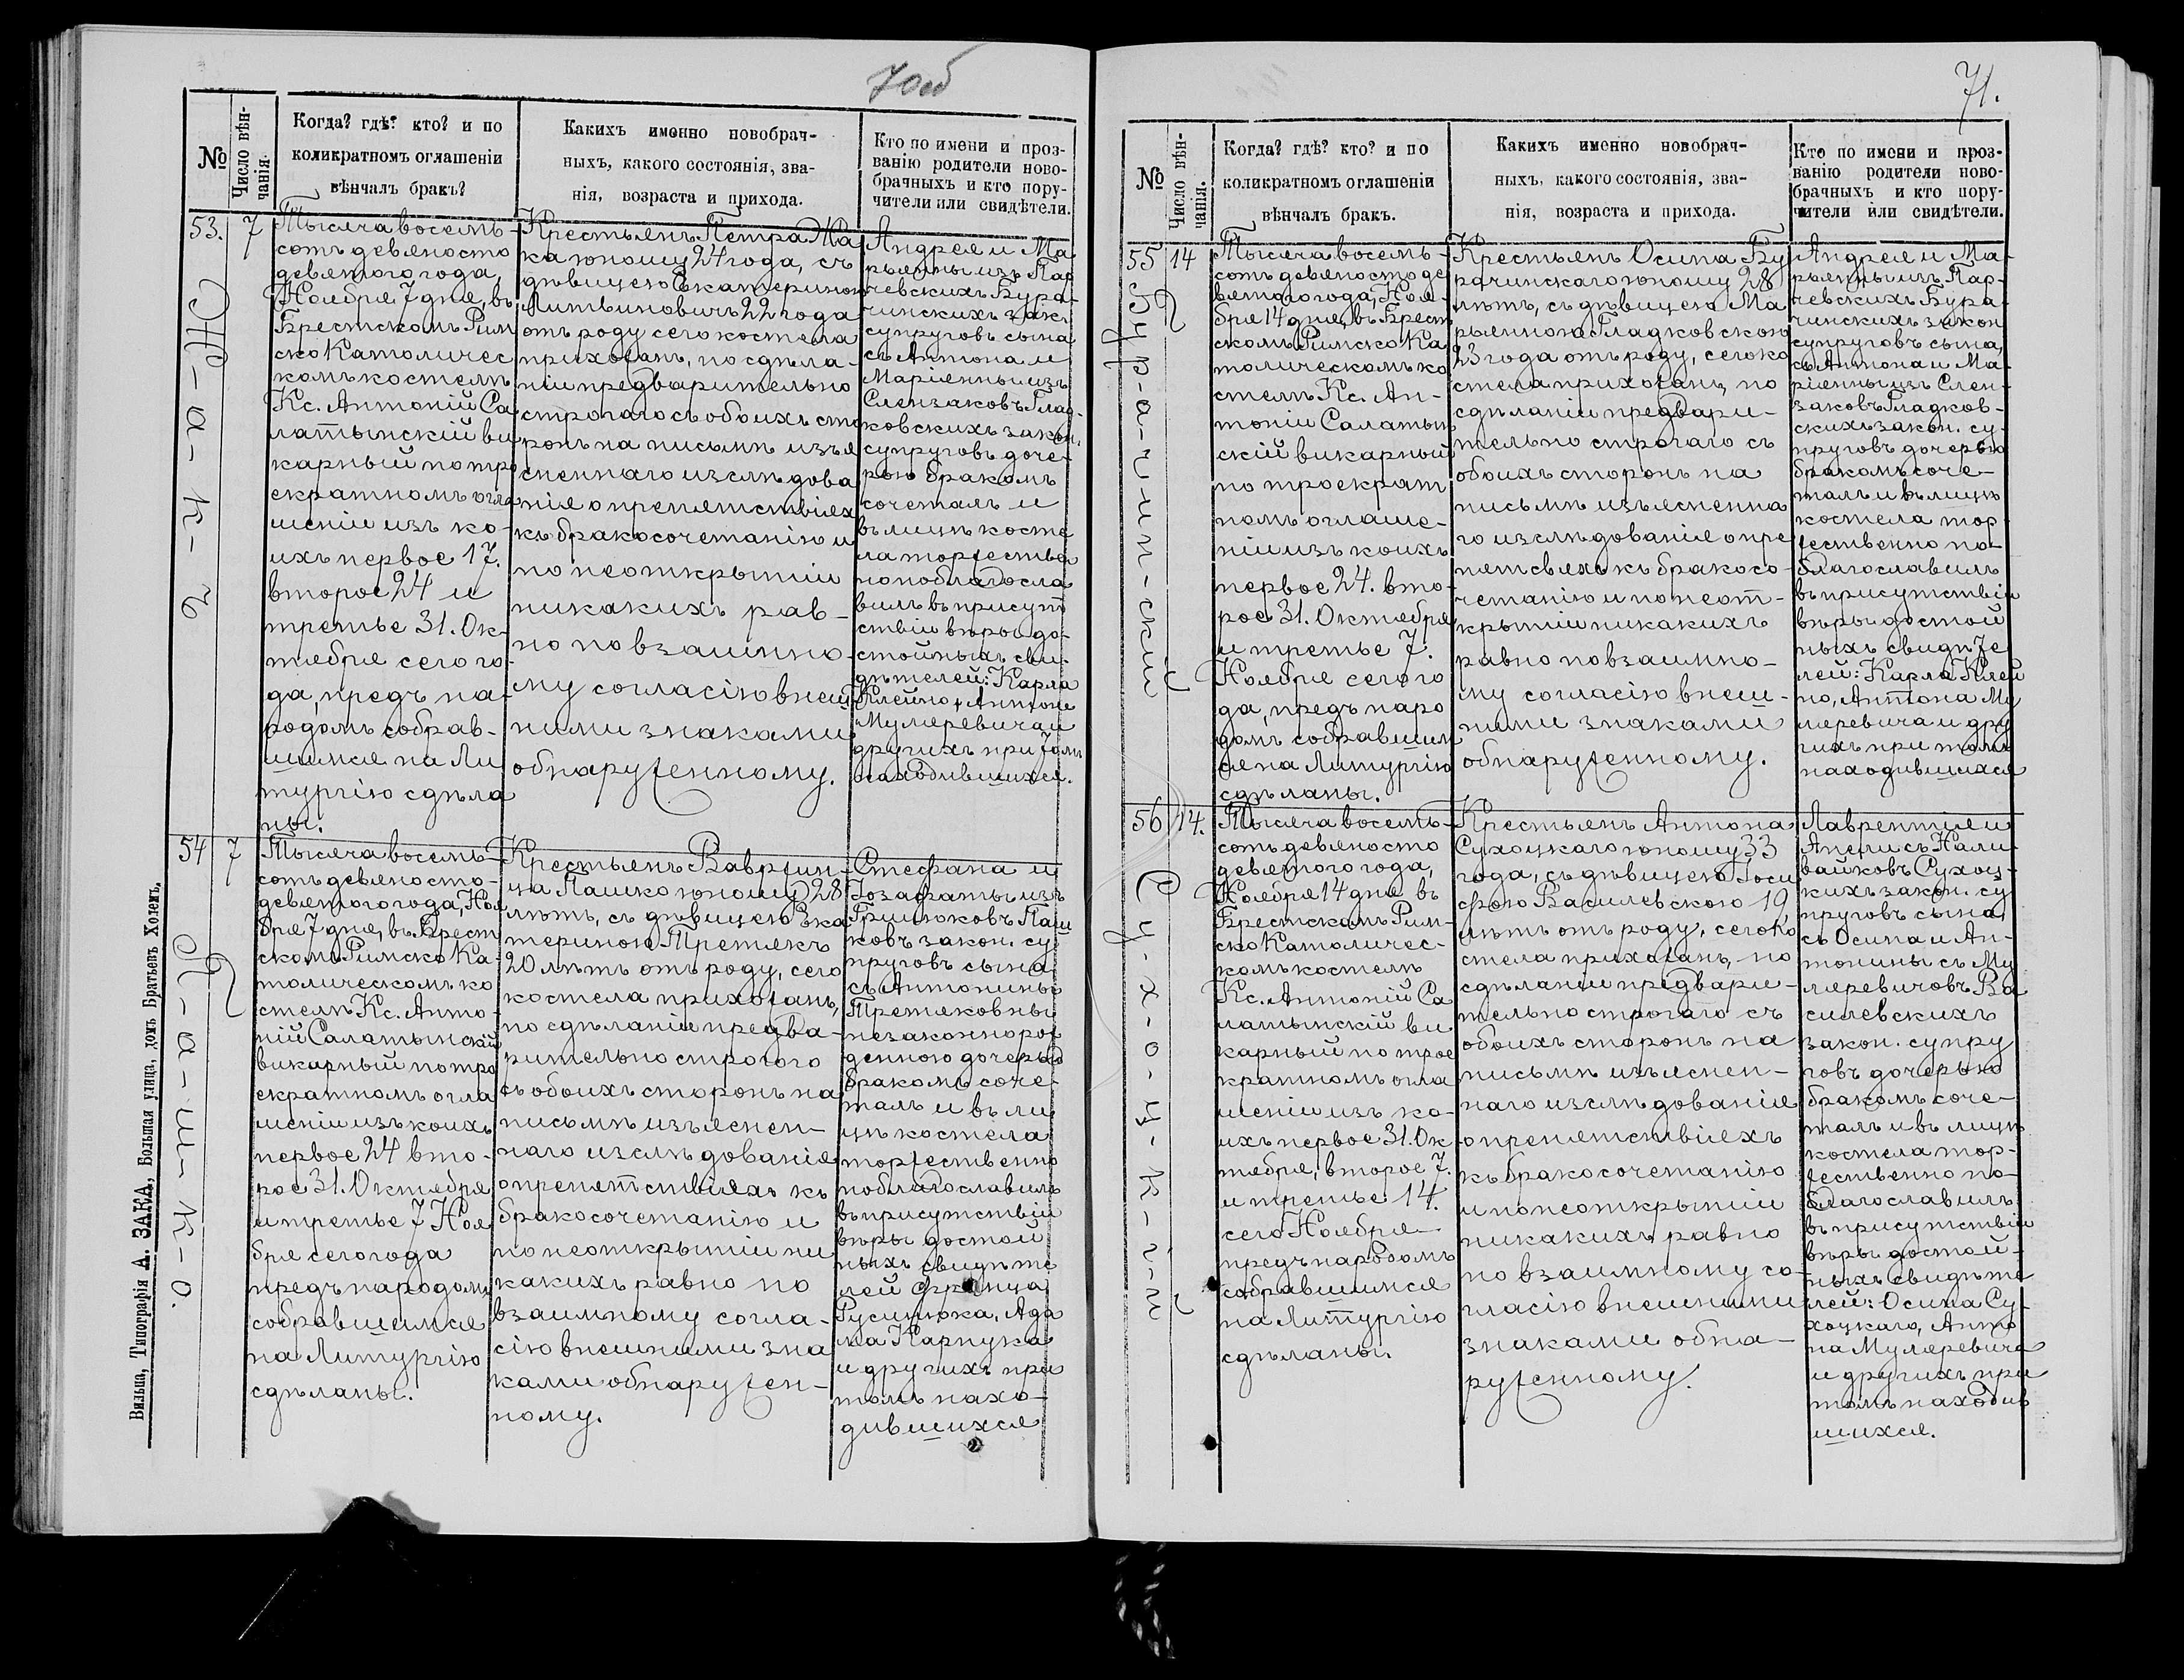 70об
№
Число вѣн-
чанія.
Когда? гдѣ? кто? и по
коликратномъ оглашеніи
вѣнчалъ бракъ?
Какихъ именно новобрач-
ныхъ, какого состоянія, зва-
нія, возраста и прихода.
Кто по имени и проз-
ванію родители ново-
брачныхъ и кто пору-
чители или свидѣтели.
53.
7
Ж-а-к-ъ
Тысяча восемь-
сотъ девяносто
девятого года,
Ноября 7 дня, въ
Брестскомъ Рим
ско Католичес
комъ костелѣ
Кс. Антоній Са
латынскій ви
карный по тро
екратномъ огла
шеніи изъ ко-
ихъ первое 17.
второе 24 и
третье 31. Ок-
тября сего го-
да, предъ на-
родомъ собрав-
шимся на Ли
тургію сдѣла
ны.
Крестьянъ Петра Жа
ка юношу 24 года, съ
дѣвицею Екатериною
Литвиновичъ 22 года
отъ роду сего костела
прихожанъ, по сдѣла-
ніи предварительно
строгаго съ обоихъ сто
ронъ на письмѣ изъя
сненнаго изслѣдова
нія о препятствіяхъ
къ бракосочетанію и
по неоткрытіи
никакихъ рав-
но по взаимно-
му согласію внеш
ними знаками
обнаруженному.
Андрея и Ма
рьянны изъ Пар
чевскихъ Бура-
чинскихъ закон.
супруговъ сына
съ Антона и
Маріянны изъ
Слензаковъ Глад-
ковскихъ закон.
супруговъ доче-
рью бракомъ
сочеталъ и
въ лицѣ косте
ла торжествен
но поблагосла
вилъ въ присут
ствіи вѣры до-
стойныхъ сви-
дѣтелей: Карла
Клейно, Антона
Муляревича и
другихъ при томъ
находившихся.
54
7
П-а-ш-к-о.
Тысяча восемь-
сотъ девяносто-
девятого года, Ноя
бря 7 дня, въ Брест
скомъ Римско Ка-
толическомъ ко
стелѣ Кс. Анто-
ній Салатынскій
викарный по тро
екратномъ огла
шеніи изъ коихъ
первое 24 вто-
рое 31. Октября
и третье 7 Ноя
бря сего года
предъ народомъ
собравшимся
на Литургію
сдѣланы.
Крестьянъ Ваврин-
ца Пашко юношу 28
лѣтъ, съ дѣвицею Ека
териною Третякъ
20 лѣтъ отъ роду, сего
костела прихожанъ,
по сдѣланіи предва-
рительно строгого
съ обоихъ сторонъ на
письмѣ изъяснен-
наго изслѣдованія
о препятствіяхъ къ
бракосочетанію и
по неоткрытіи ни
какихъ равно по
взаимному согла-
сію внешними зна
ками обнаружен-
ному.
Стефана и
Іозафаты изъ
Гринюковъ Паш
ковъ закон. су
пруговъ сына
съ Антонины
Третяковны
незаконнорож
денною дочерью
бракомъ соче-
талъ и въ ли
цѣ костела
торжественно
поблагославилъ
въ присутствіи
вѣры достой
ныхъ свидѣте
лей Франца
Русинюка, Ада
ма Карпука
и другихъ при
томъ нахо-
дившихся
Вильна, Типографія А. ЗАКА, Большая улица, домъ Братьевъ Холемъ.
71.
№
Число вѣн-
чанія.
Когда? гдѣ? кто? и по
коликратномъ оглашеніи
вѣнчалъ бракъ.
Какихъ именно новобрач-
ныхъ, какого состоянія, зва-
нія, возраста и прихода.
Кто по имени и проз-
ванію родители ново-
брачныхъ и кто пору-
чители или свидѣтели.
55
14
Бу-р-а-ч-ин-скій
Тысяча восемь-
сотъ девяносто де
вятого года, Ноя-
бря 14 дня, въ Брест
скомъ Римско Ка
толическомъ ко
стелѣ Кс. Ан-
тоній Салатын
скій викарный
по троекрат
номъ оглаше-
ніи изъ коихъ
первое 24. вто-
рое 31. Октября
и третье 7.
Ноября сего го
да, предъ наро
домъ собравшим
ся на Литургію
сдѣланы.
Крестьянъ Осипа Бу
рачинскаго юношу 28
лѣтъ, съ дѣвицею Ма
рьянною Гладковскою
23 года отъ роду, сего ко
стела прихожанъ, по
сдѣланіи предвари-
тельно строгаго съ
обоихъ сторонъ на
письмѣ изъясненна
го изслѣдованія о пре
пятсвяхъ къ бракосо-
четанію и по неот-
крытіи никакихъ
равно по взаимно-
му согласію внеш-
ними знаками
обнаруженному.
Андрея и Ма-
рьянны изъ Пар-
чевскихъ Бура-
чинскихъ закон
супруговъ сына,
съ Антона и Ма-
ріянны изъ Слен-
заковъ Гладков-
скихъ закон. су-
пруговъ дочерью
бракомъ соче-
талъ и въ лицѣ
костела тор-
жественно по-
благославилъ
въ присутствіи
вѣры достой
ныхъ свидѣте
лей: Карла Клей
но, Антона Му
ляревича и дру
гихъ при томъ
находившихся
56
14.
С-у-х-о-ц-к-і-й
Тысяча восемь-
сотъ девяносто
девятого года,
Ноября 14 дня въ
Брестскомъ Рим-
ско Католичес-
комъ костелѣ
Кс. Антоній Са
латынскій ви
карный по трое
кратномъ огла
шеніи изъ ко-
ихъ первое 31. Ок
тября, второе 7.
и третье 14.
сего Ноября
предъ народомъ
собравшимся
на Литургію
сдѣланы.
Крестьянъ Антона
Сухоцкаго юношу 33
года, съ дѣвицею Іоси
фою Василевскою 19
лѣтъ отъ роду, сего ко
стела прихожанъ, по
сдѣланіи предвари-
тельно строгаго съ
обоихъ сторонъ на
письмѣ изъяснен-
наго изслѣдованія
о препятствіяхъ
къ бракосочетанію
и по неоткрытіи
никакихъ равно
по взаимному со-
гласію внешними
знаками обна-
руженному.
Лаврентія и
Анели съ Нали-
вайковъ Сухоц-
кихъ закон. су
пруговъ сына,
съ Осипа и Ан-
тонины съ Му
ляревичовъ Ва
силевскихъ
закон. супру
говъ дочерью
бракомъ соче-
талъ и въ лицѣ
костела тор-
жественно по-
благославилъ
въ присутствіи
вѣры достой-
ныхъ свидѣте
лей: Осипа Су-
хоцкаго, Анто
на Муляревича
и другихъ при
томъ находив
шихся.